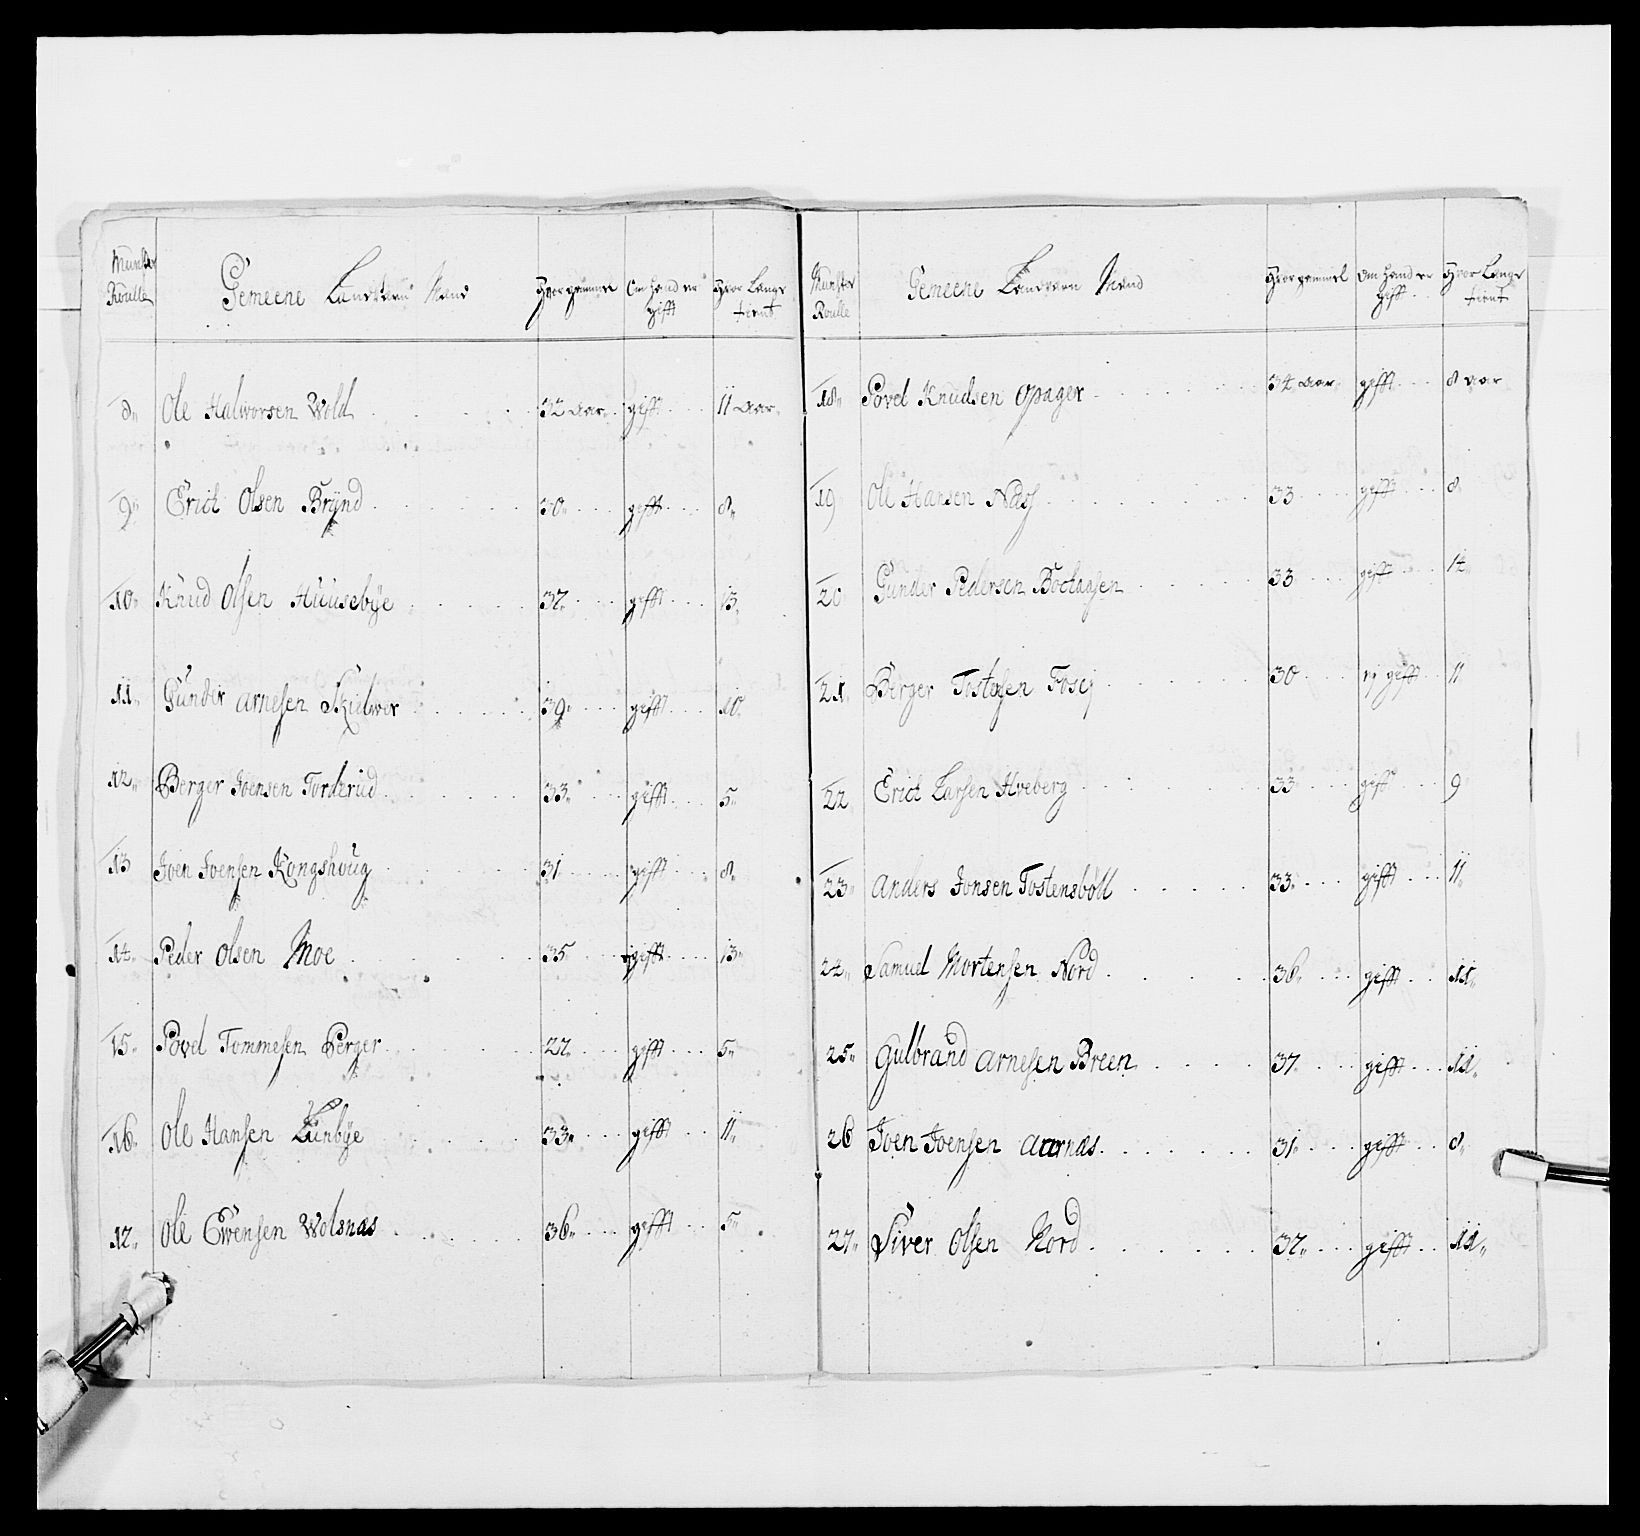 Munster Roulle | Gemeene Landværn Mænd | Hvor gammel | Om hand er gifft | Hvor Længe tient
8„ Ole Halworsen Wold 32 aar„ gifft 11 aar„
9„ Erich Olsen Brÿnd 30„ gifft 8„
10„ Knud Olsen Huusebÿe 37„ gifft 13„
11„ Gunder arnesen Skielwer 39„ gifft 10„
12„ Berger Joensen Torderud 33„ gifft 5„
13 Joen Joensen Kongshoug 31 gifft 8„
14„ Peder Olsen Moe 35 gifft 13„
15„ Povel Tommesen Berger 22„ gifft 5„
16„ Ole Hansen Lunbÿe 33„ gifft 11„
17„ Ole Ewensen Wolsnæs 36„ gifft 5„
Munster Roulle | Gemeene Landværn Mænd | Hvor gammel | Om hand er gifft | Hvor Længe tient
18„ Povel Knudsen Opager 34 aar„ gifft 8 aar
19 Ole Hansen Næss 33 gifft 8„
20 Gunder Pedersen 33 gifft 14„
21„ Berger Tostesen Foss 30 ej gifft 11
22 Erich Larsen Hveberg 33 giff 9
23„ Anders Jonsen Tostensböll 33„ gifft 11„
24„ Samuel Mortensen Nord 36„ gifft 11„
25„ Gulbrand Arnesen Breen 37 gifft 11„
26 Joen Joensen Aarnæs 31„ gifft 8„
27„ Siver Olsen Nord 37„ gifft 11„